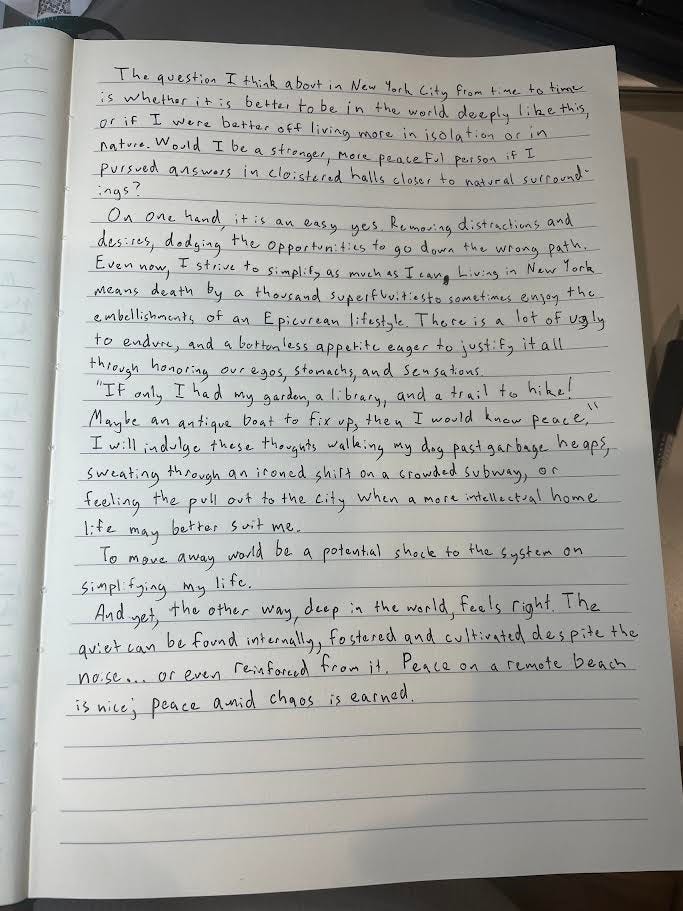 The question I think about in New York City from time to time
is whether it is better to be in the world deeply like this,
or if I were better off living more in isolation or in
nature. Would I be a stronger, more peaceful person if I
pursued answers in cloistered halls closer to natural surround-
ings?
On one hand, it is an easy yes. Removing distractions and
desires, dodging the opportunities to go down the wrong path.
Even now, I strive to simplify as much as I can. Living in New York
means death by a thousand superfluities to sometimes enjoy the
embellishments of an Epicurean lifestyle. There is a lot of ugly
to endure, and a bottomless appetite eager to justify it all
through honoring our egos, stomachs, and sensations.
"If only I had my garden, a library, and a trail to hike!
Maybe an antique boat to fix up, then I would know peace,"
I will indulge these thoughts walking my dog past garbage heaps,
sweating through an ironed shirt on a crowded subway, or
feeling the pull out to the city when a more intellectual home
life may better suit me.
To move away would be a potential shock to the system on
simplifying my life.
And yet, the other way, deep in the world, feels right. The
quiet can be found internally, fostered and cultivated despite the
noise... or even reinforced from it. Peace on a remote beach
is nice; peace amid chaos is earned.